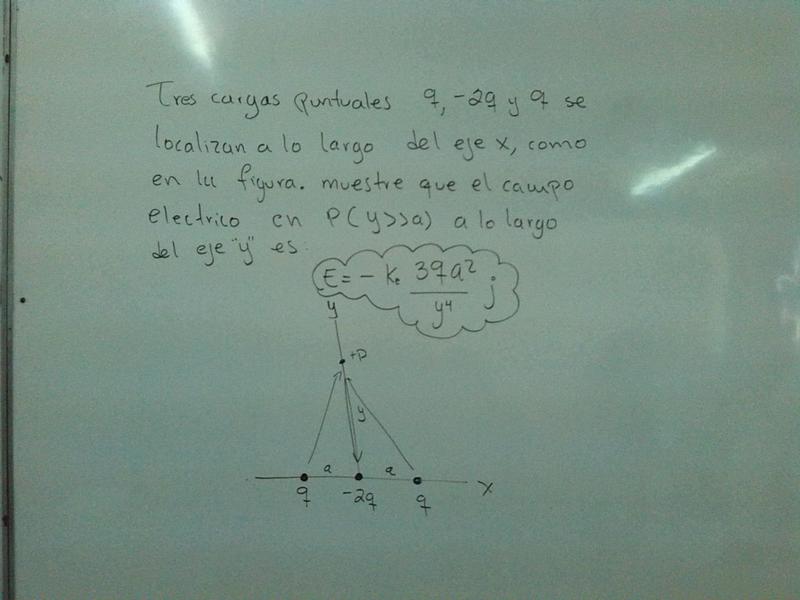 Tres cargas puntuales q, -2q y q se
localizan a lo largo del eje x, como
en la figura. muestre que el campo
electrico en P(y>>a) a lo largo
del eje "y" es:
E = - Ke 3qa²/y⁴ j
y
+P
y
a a
x
q -2q q